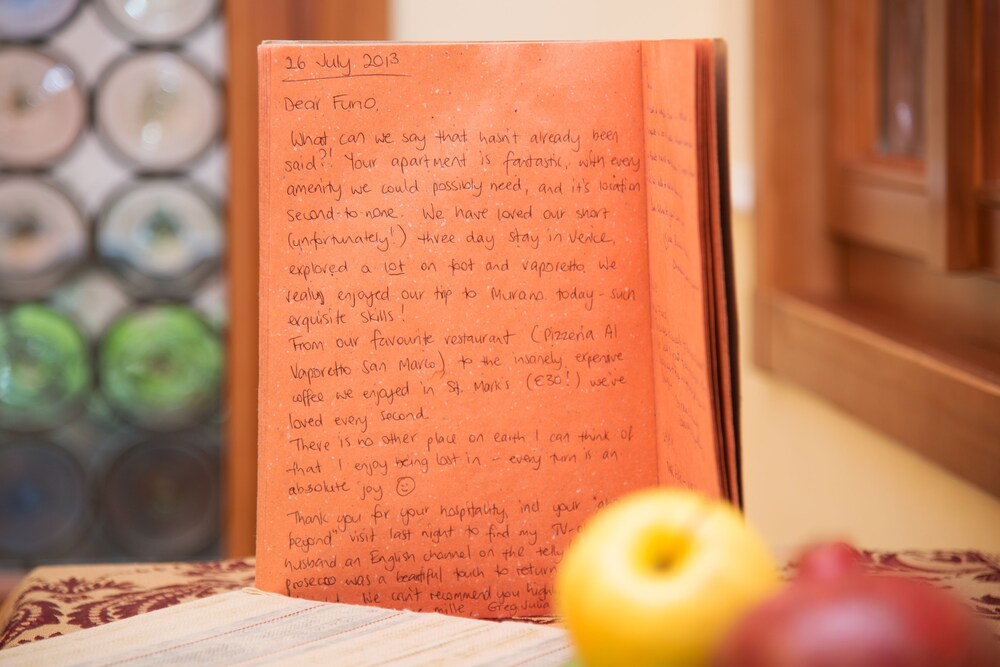 16 July 2013
Dear Funo,
What can we say that hasn't already been
said?! Your apartment is fantastic, with every
amenity we could possibly need, and it's location
second-to-none. We have loved our short
(unfortunately!) three day stay in Venice,
explored a lot on foot and vaporetto. We
really enjoyed our trip to Murano today - such
exquisite skills!
From our favourite restaurant (Pizzeria Al
Vaporetto San Marco) to the insanely expensive
coffee we enjoyed in St. Mark's (€30!) we've
loved every second.
There is no other place on earth I can think of
that I enjoy being lost in - every turn is an
absolute joy ☺
Thank you for your hospitality, incl. your
beyond" visit last night to find my TV-
husband an English channel on the telly
prosecco was a beautiful touch to return
We can't recommend you
mille, Greg